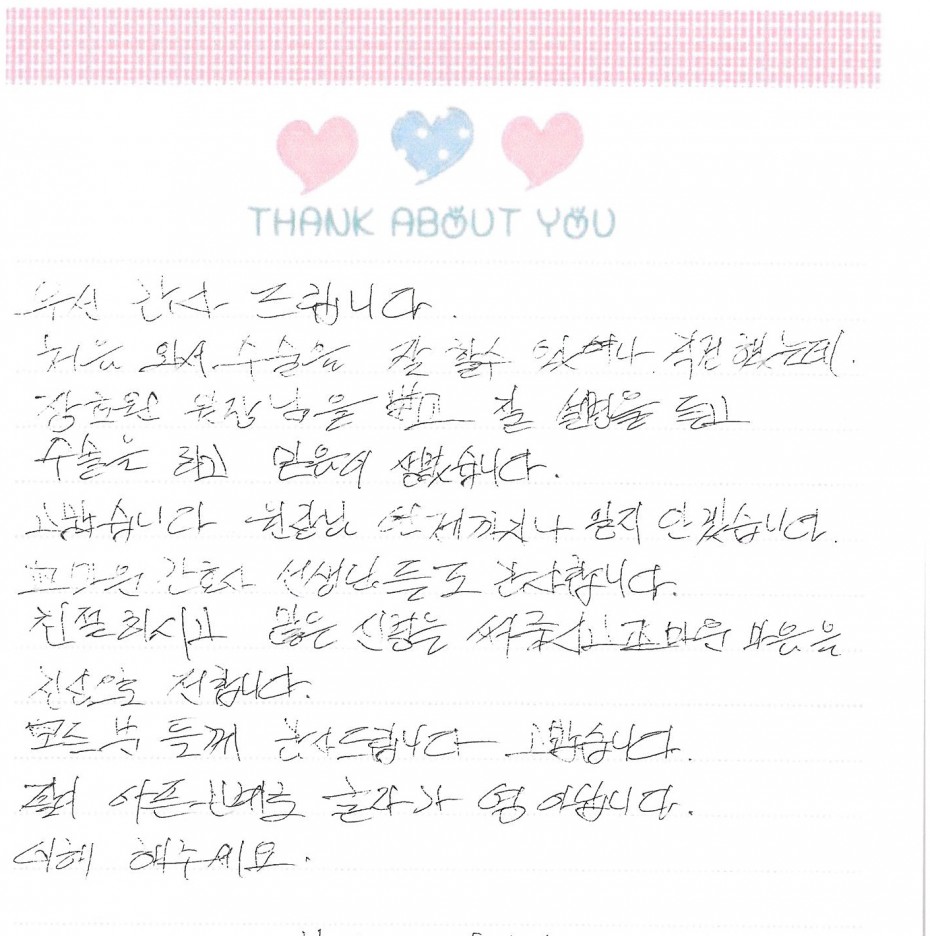 THANK ABOUT YOU
우선 감사 드립니다.
처음 와서 수술을 잘 할수 있어나 걱정했는데.
장호원 원장님을 뵙고 설명을 듣고
수술을 하고 믿음이 생겼습니다.
고맙습니다 원장님 언제까지나 잊지 안겠습니다.
고마운 간호사 선생님들도 감사합니다.
친절하시고 많은 신경을 써주시고 고마운 마음을
진심으로 전합니다.
모든분 들께 감사드립니다 고맙습니다.
아픈 글자가 영 아닙니다.
이해 해주세요.